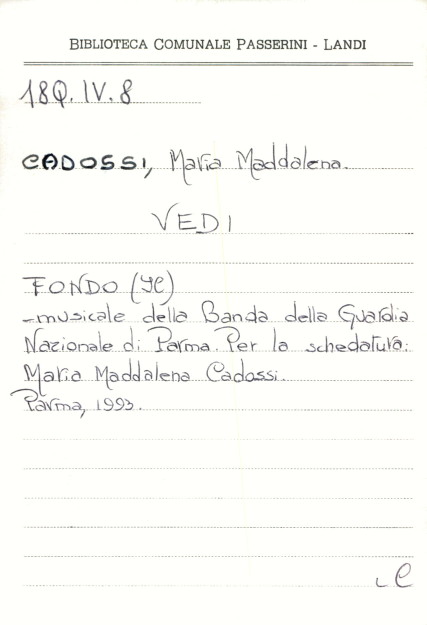 BIBLIOTECA COMUNALE PASSERINI - LANDI
18Q. IV. 8
CADOSSI, Maria Maddalena.
VEDI
FONDO (Il)
-musicale della Banda della Guardia
Nazionale di Parma. Per la schedatura:
Maria Maddalena Cadossi.
Parma, 1993.